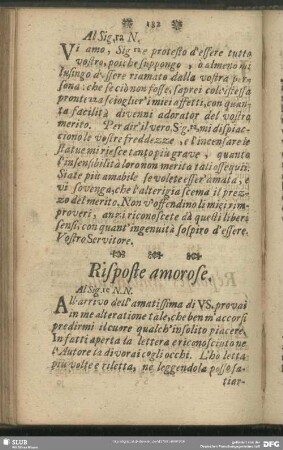 182
Al Sig.ra N.
Vi amo, Sig.ra e protesto d'essere tutto
vostro, poiche suppongo, ò almeno mi
lusingo d'essere riamato dalla vostra per-
sona: che se ciò non fosse, saprei colistessa
prontezza scioglier' imiei affetti, con quan-
ta facilità divenni adorator del vostro
merito. Per dir'il vero, Sig.ra, mi dispiac-
ciono le vostre freddezze, e l'incensare le
statue mi riesce tanto più grave, quanto
l'insensibilità loro non merita tali ossequii.
Siate più amabile se volete esser'amata, e
vi sovenga, che l'alterigia scema il prez-
zo del merito. Non v'offendino li miei rim-
proveri, anzi riconoscete dà quelli liberi
sensi, con quant'ingenuità sospiro d'essere.
Vostro Servitore.
Risposte amorose.
Al Sig.re N.N.
All'arrivo dell'amatissima di VS. provai
in me alteratione tale, che ben m'accorsi
predirmi il cuore qualch'insolito piacere.
In fatti aperta la lettera e riconosciutone
l'Autore la divorai cogli occhi. L'hò letta
piu volte e riletta, nè leggendola posso sa-
tiar-
SLUB
DFG